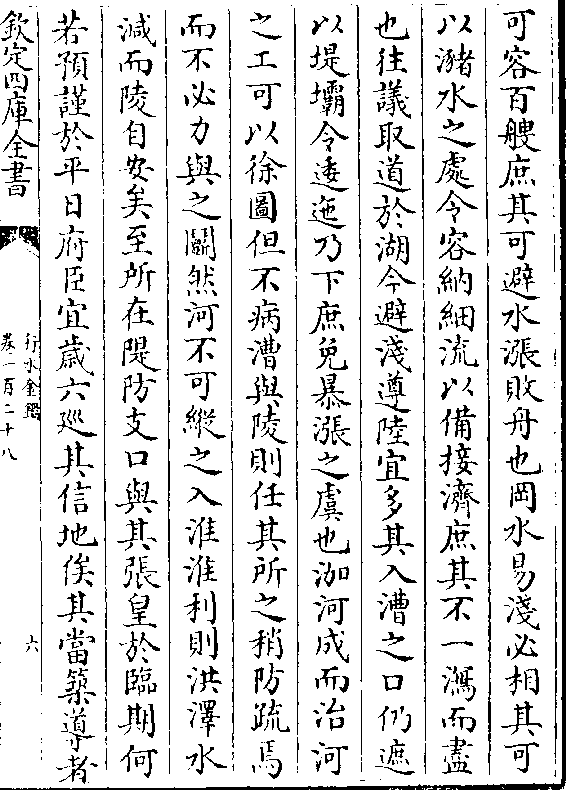 可容百艘庶其可避水漲敗舟也岡水易淺必相其可
以瀦水之處令容納細流以備接濟庶其不一瀉而盡
也往議取道於湖今避淺遵陸宜多其入漕之口仍遮
以堤壩令逶迤乃下庶免暴漲之虞也泇河成而治河
之工可以徐圖但不病漕與陵則任其所之稍防疏焉
而不必力與之鬬然河不可縱之入淮淮利則洪澤水
減而陵自安矣至所在隄防支口與其張皇於臨期何
若預謹於平日府臣宜歲六廵其信地俟其當築導者
欽定四庫全書
行水金鑑
卷一百二十八
六